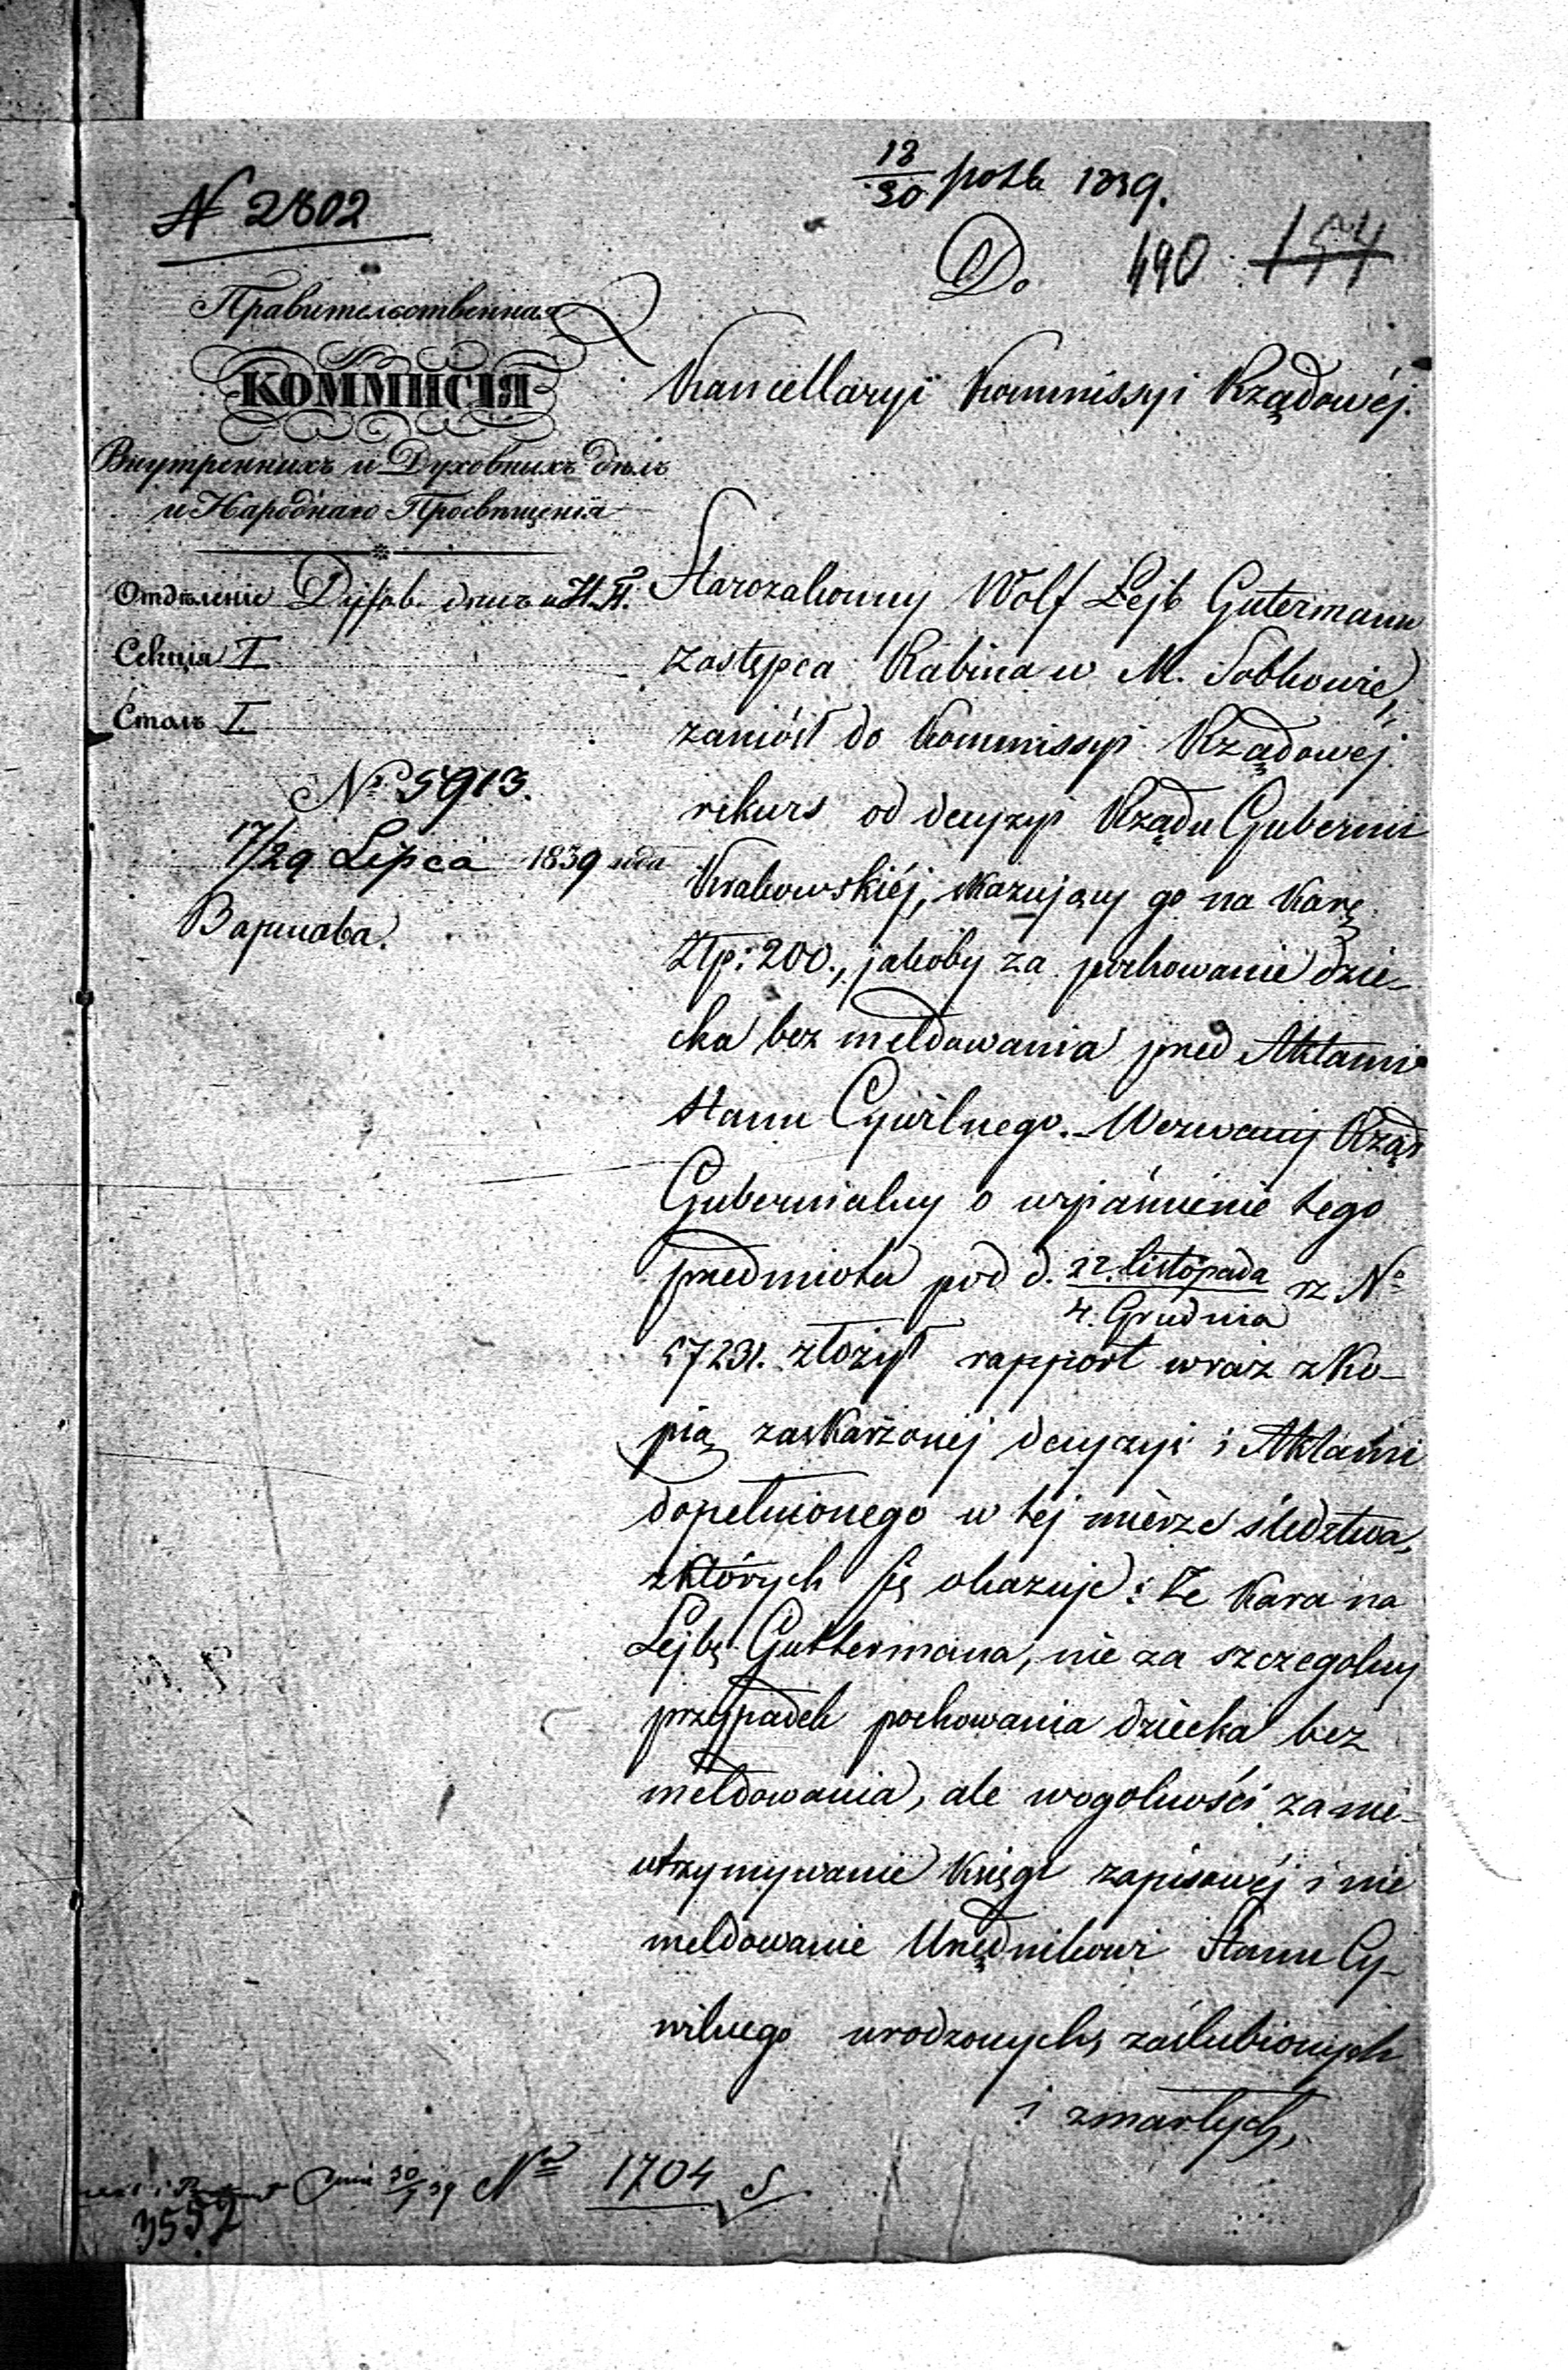 N 2802
18/30 1839.
Do 490 154
Правительственная
КОММИСІЯ
Внутреннихъ и Духовныхъ дѣлъ
и Народнаго Просвѣщенія
Kancellaryi Kommissyi Rządowéj.
Отдѣленіе Духов. дѣлъ и Н. П.
Секція I
Столъ I.
№ 5913.
17/29 Lipca 1839 года
Варшава.
Starozakonny Wolf Lejb Gutermann
zastępca Rabina w M. Sobkowie,
zaniósł do Kommissyi Rządowej
rekurs od decyzyi Rządu Gubernii
Krakowskiéj, skazującej go na karę
Złp: 200., jakoby za pochowanie dzie-
cka bez meldowania przed Aktami
Stanu Cywilnego. Wezwany Rząd
Gubernialny o wyjaśnienie tego
przedmiotu pod d. 22. listopada / 4. Grudnia rz. No
57231. złożył rapport wraz z ko-
pią zaskarżonej decyzyi i Aktami
dopełnionego w tej mierze śledztwa,
z których się okazuje: Że kara na
Lejbę Guttermana, nie za szczegolny
przypadek pochowania dziecka bez
meldowania, ale wogolności za nie-
utrzymywanie księgi zapisowéj i nie
meldowanie Urzędnikowi Stanu Cy-
wilnego urodzonych, zaślubionych
i zmarłych,
dnia 30/7 39 No 1704
3552